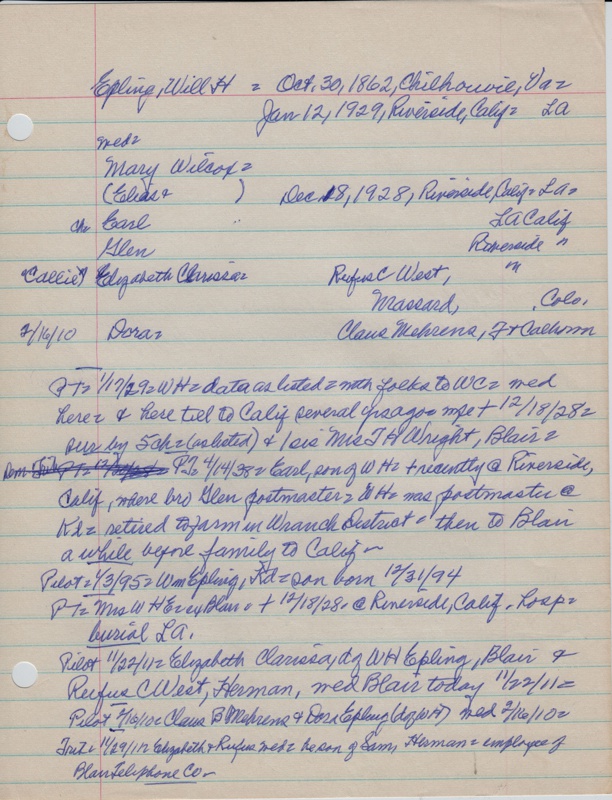 Epling, Will H = Oct. 30, 1862, Chilhowie, Va =
Jan 12, 1929, Riverside, Calif = LA
med =
Mary Wilcox =
(Elias + ) Dec. 18, 1928, Riverside, Calif = La =
Ch = Earl LA Calif
Glen Riverside "
"Callie") Elizabeth Clarissa = Rufus C West, "
Massard, Colo.
2/16/10 Dora = Claus Mehrens, Ft Calhoun
PT = 1/17/29 = WH = data as listed = with folks to WC = med
here = & here til to Calif several yrs ago = wife + 12/18/28 =
sur by 5 ch = (as listed) & 1 sis Mrs T H Wright, Blair =
PT 4/14/38 = Earl, son of WH = + recently @ Riverside,
Calif, where bro Glen postmaster = WH = was postmaster @
Kd = retired to farm in Wranch District = then to Blair
a while before family to Calif -
Pilot = 1/3/95 = Wm Epling, Kd = son born 12/31/94
PT = Mrs W H E = ex Blair = + 12/18/28 = @ Riverside, Calif. hosp =
burial LA.
Pilot 11/22/11 = Elizabeth Clarissa, dg WH Epling, Blair &
Rufus C West, Herman, med Blair today 11/22/11 =
Pilot 2/16/10 = Claus B Mehrens & Dora Epling (dg WH) med 2/16/10 =
Elizabeth & Rufus med = he son of Sam, Herman = employee of
Blair Telephone Co -